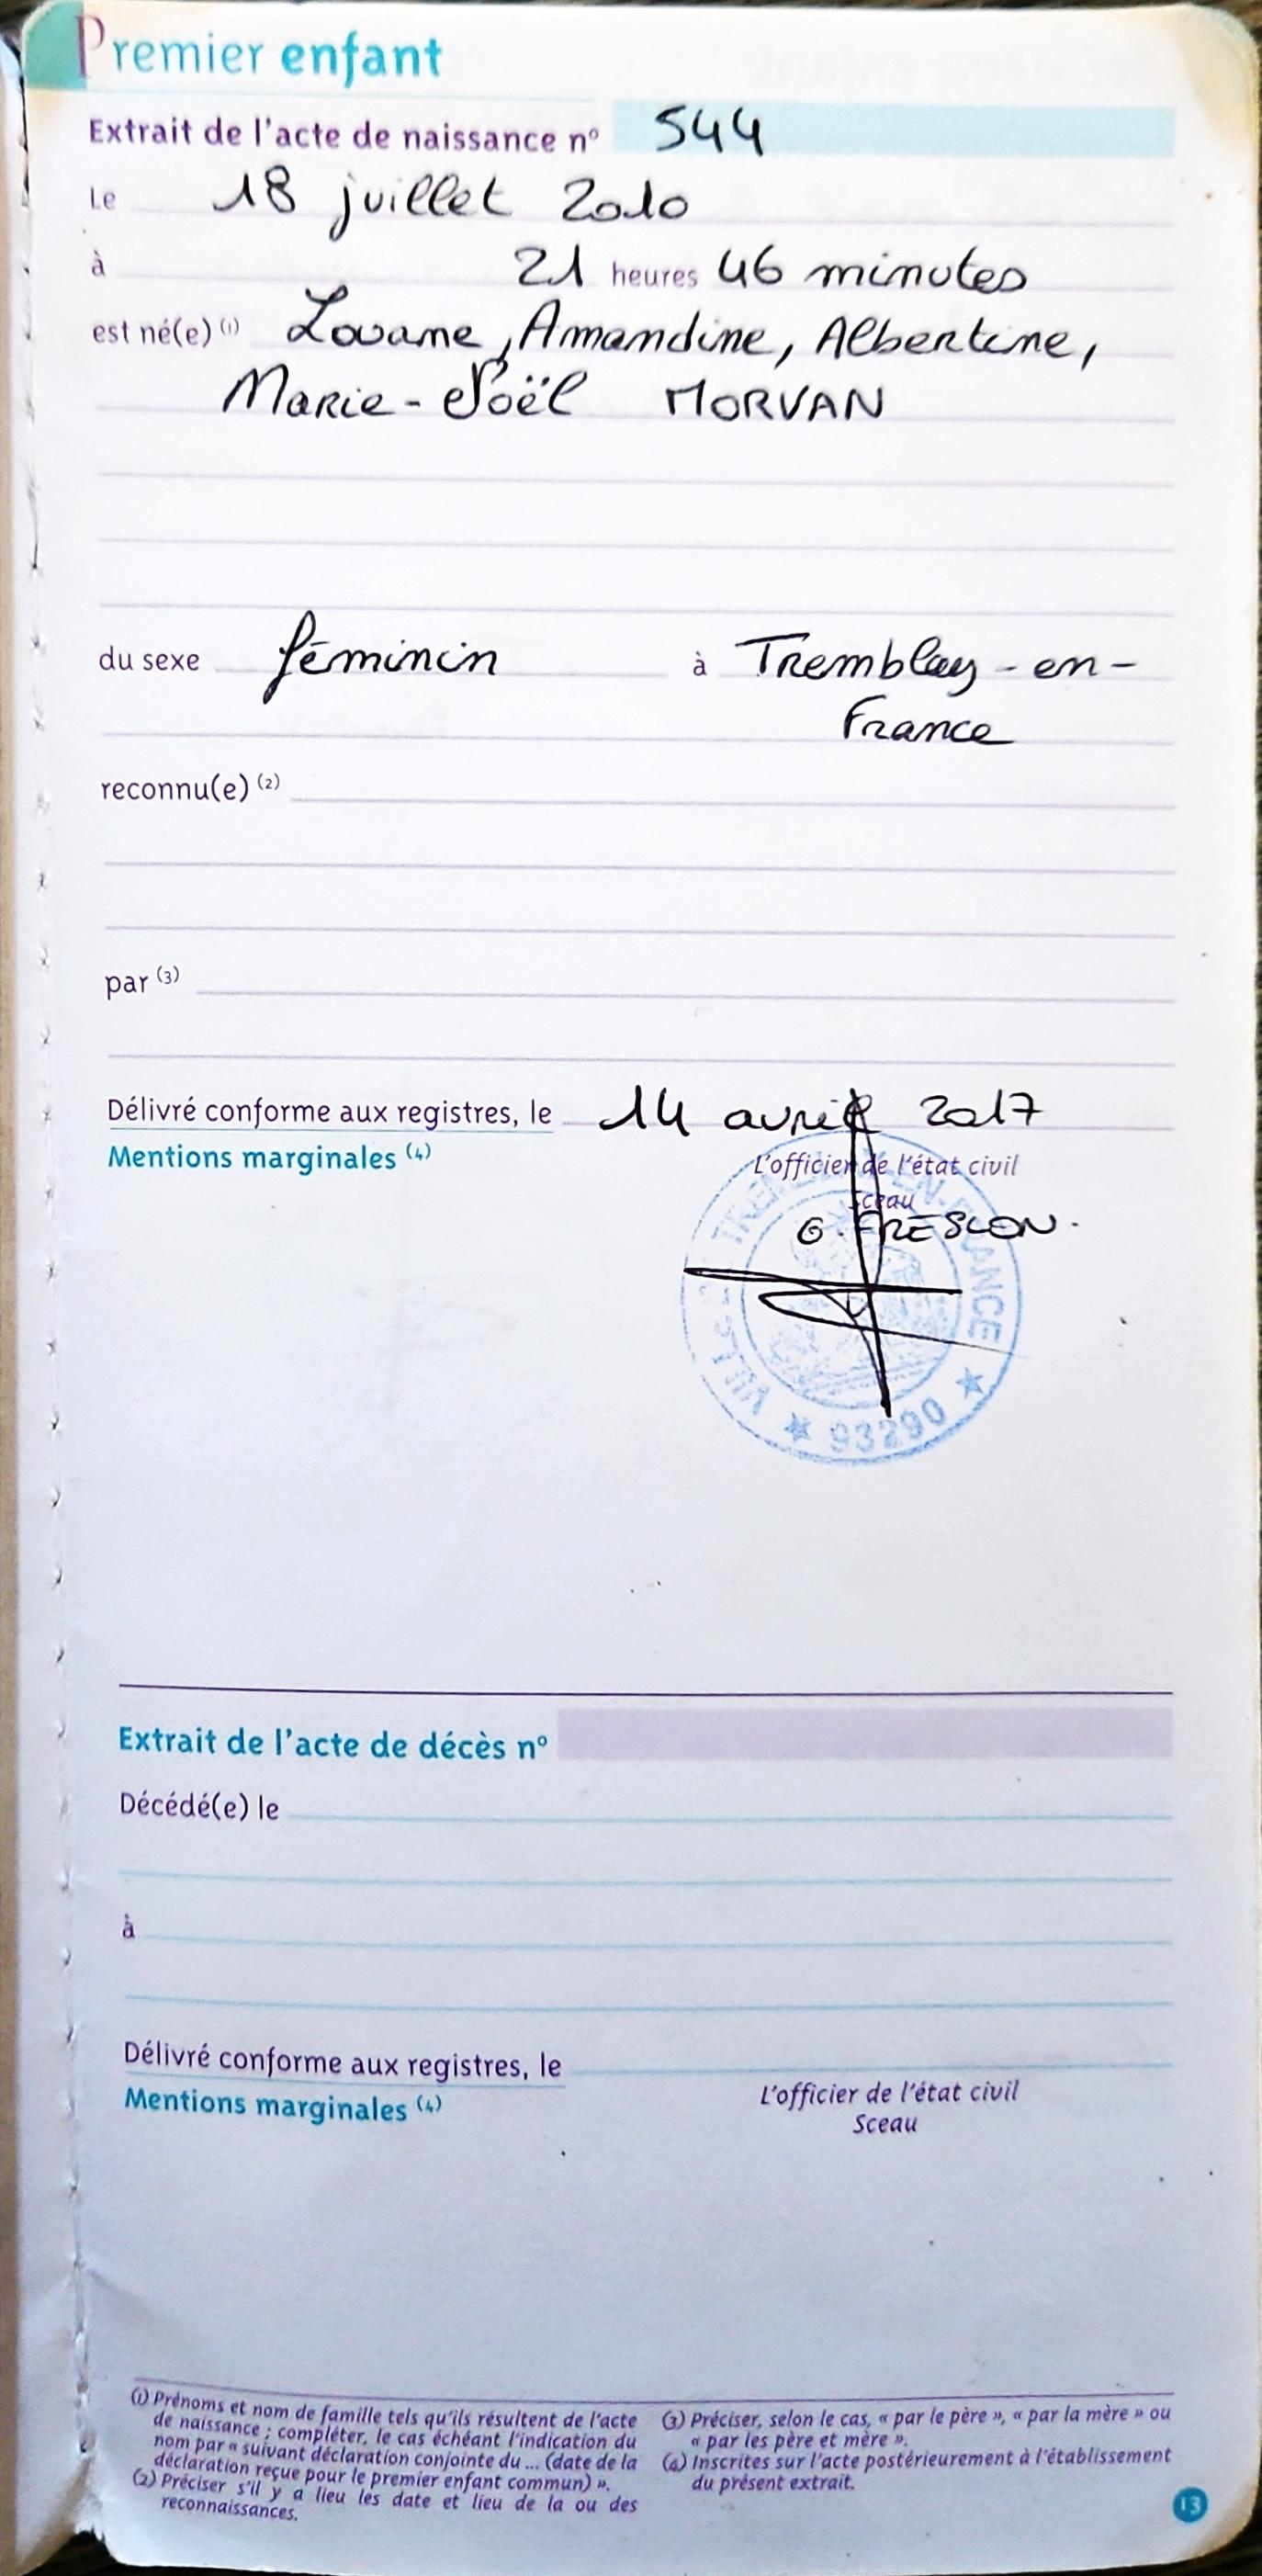 Premier enfant
Extrait de l'acte de naissance n° 544
Le 18 juillet 2010
à 21 heures 46 minutes
est né(e) (1) Louane, Amandine, Albertine,
Marie-Noël MORVAN
du sexe féminin à Tremblay-en-
France
reconnu(e) (2)
par (3)
Délivré conforme aux registres, le 14 avril 2017
Mentions marginales (4)
L'officier de l'état civil
Sceau
G. FRESLON.
VILLE DE TREMBLAY-EN-FRANCE
★ 93290 ★
Extrait de l'acte de décès n°
Décédé(e) le
à
Délivré conforme aux registres, le
Mentions marginales (4)
L'officier de l'état civil
Sceau
(1) Prénoms et nom de famille tels qu'ils résultent de l'acte
de naissance ; compléter, le cas échéant l'indication du
nom par « suivant déclaration conjointe du ... (date de la
déclaration reçue pour le premier enfant commun) ».
(2) Préciser s'il y a lieu les date et lieu de la ou des
reconnaissances.
(3) Préciser, selon le cas, « par le père », « par la mère » ou
« par les père et mère ».
(4) Inscrites sur l'acte postérieurement à l'établissement
du présent extrait.
13